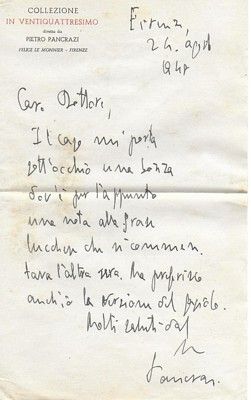 COLLEZIONE
IN VENTIQUATTRESIMO
diretta da
PIETRO PANCRAZI
FELICE LE MONNIER - FIRENZE
Firenze,
24. agosto
Caro Dottore,
Il caso mi porta
sott'occhio una bozza
dov'è per l'appunto
una nota alla frase
lucchese che si commen-
tava l'altra sera. Ma preferisco
anch'io la versione del popolo.
Molti saluti dal
Pancrazi.